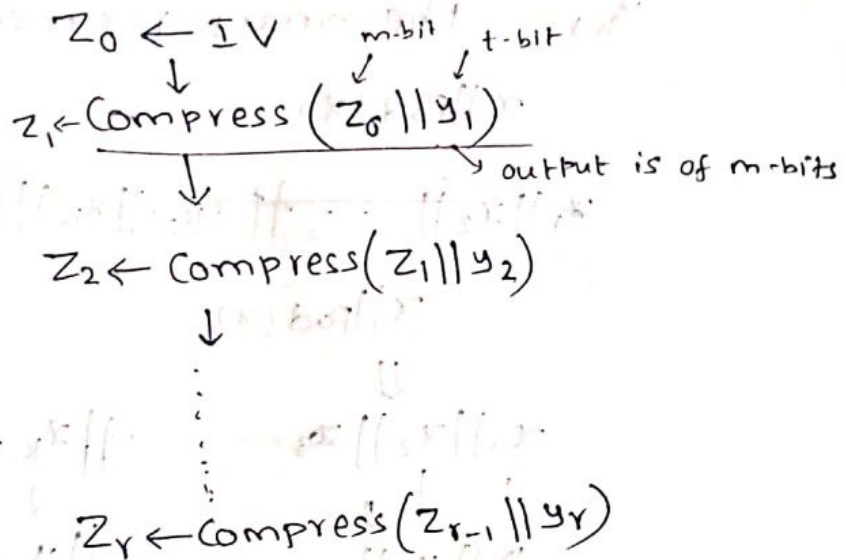 Z₀ ← IV
m-bit t-bit
Z₁ ← Compress (Z₀ || y₁)
output is of m-bits
Z₂ ← Compress(Z₁ || y₂)
Zᵣ ← Compress(Zᵣ₋₁ || yᵣ)